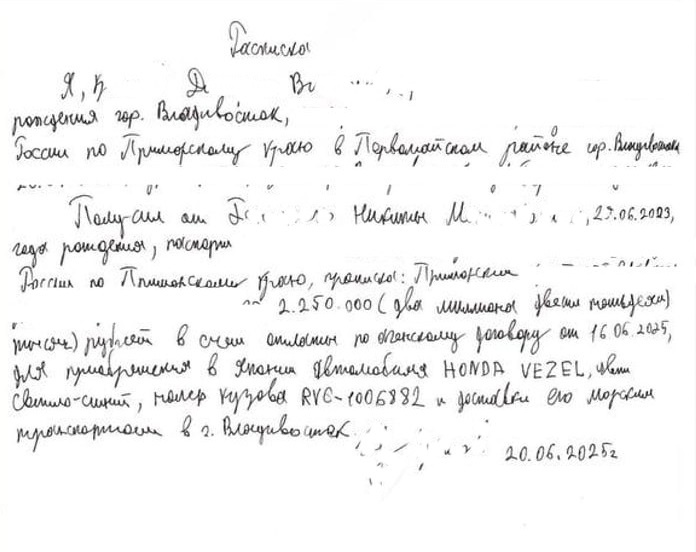 Расписка
Я, К Д Ви
рождения гор. Владивосток,
России по Приморскому краю в Первомайском районе гор. Владивостока
Получил от Г Никиты М , 23.06.2023,
года рождения, паспорт
России по Приморскому краю, прописка: Приморский
2.250.000 (два миллиона двести пятьдесят)
тысяч) рублей в счет оплаты по агентскому договору от 16.06.2025,
для приобретения в Японии автомобиля HONDA VEZEL, цвет
светло-синий, номер кузова RVC-1006882 и доставки его морским
транспортом в г. Владивосток.
20.06.2025г